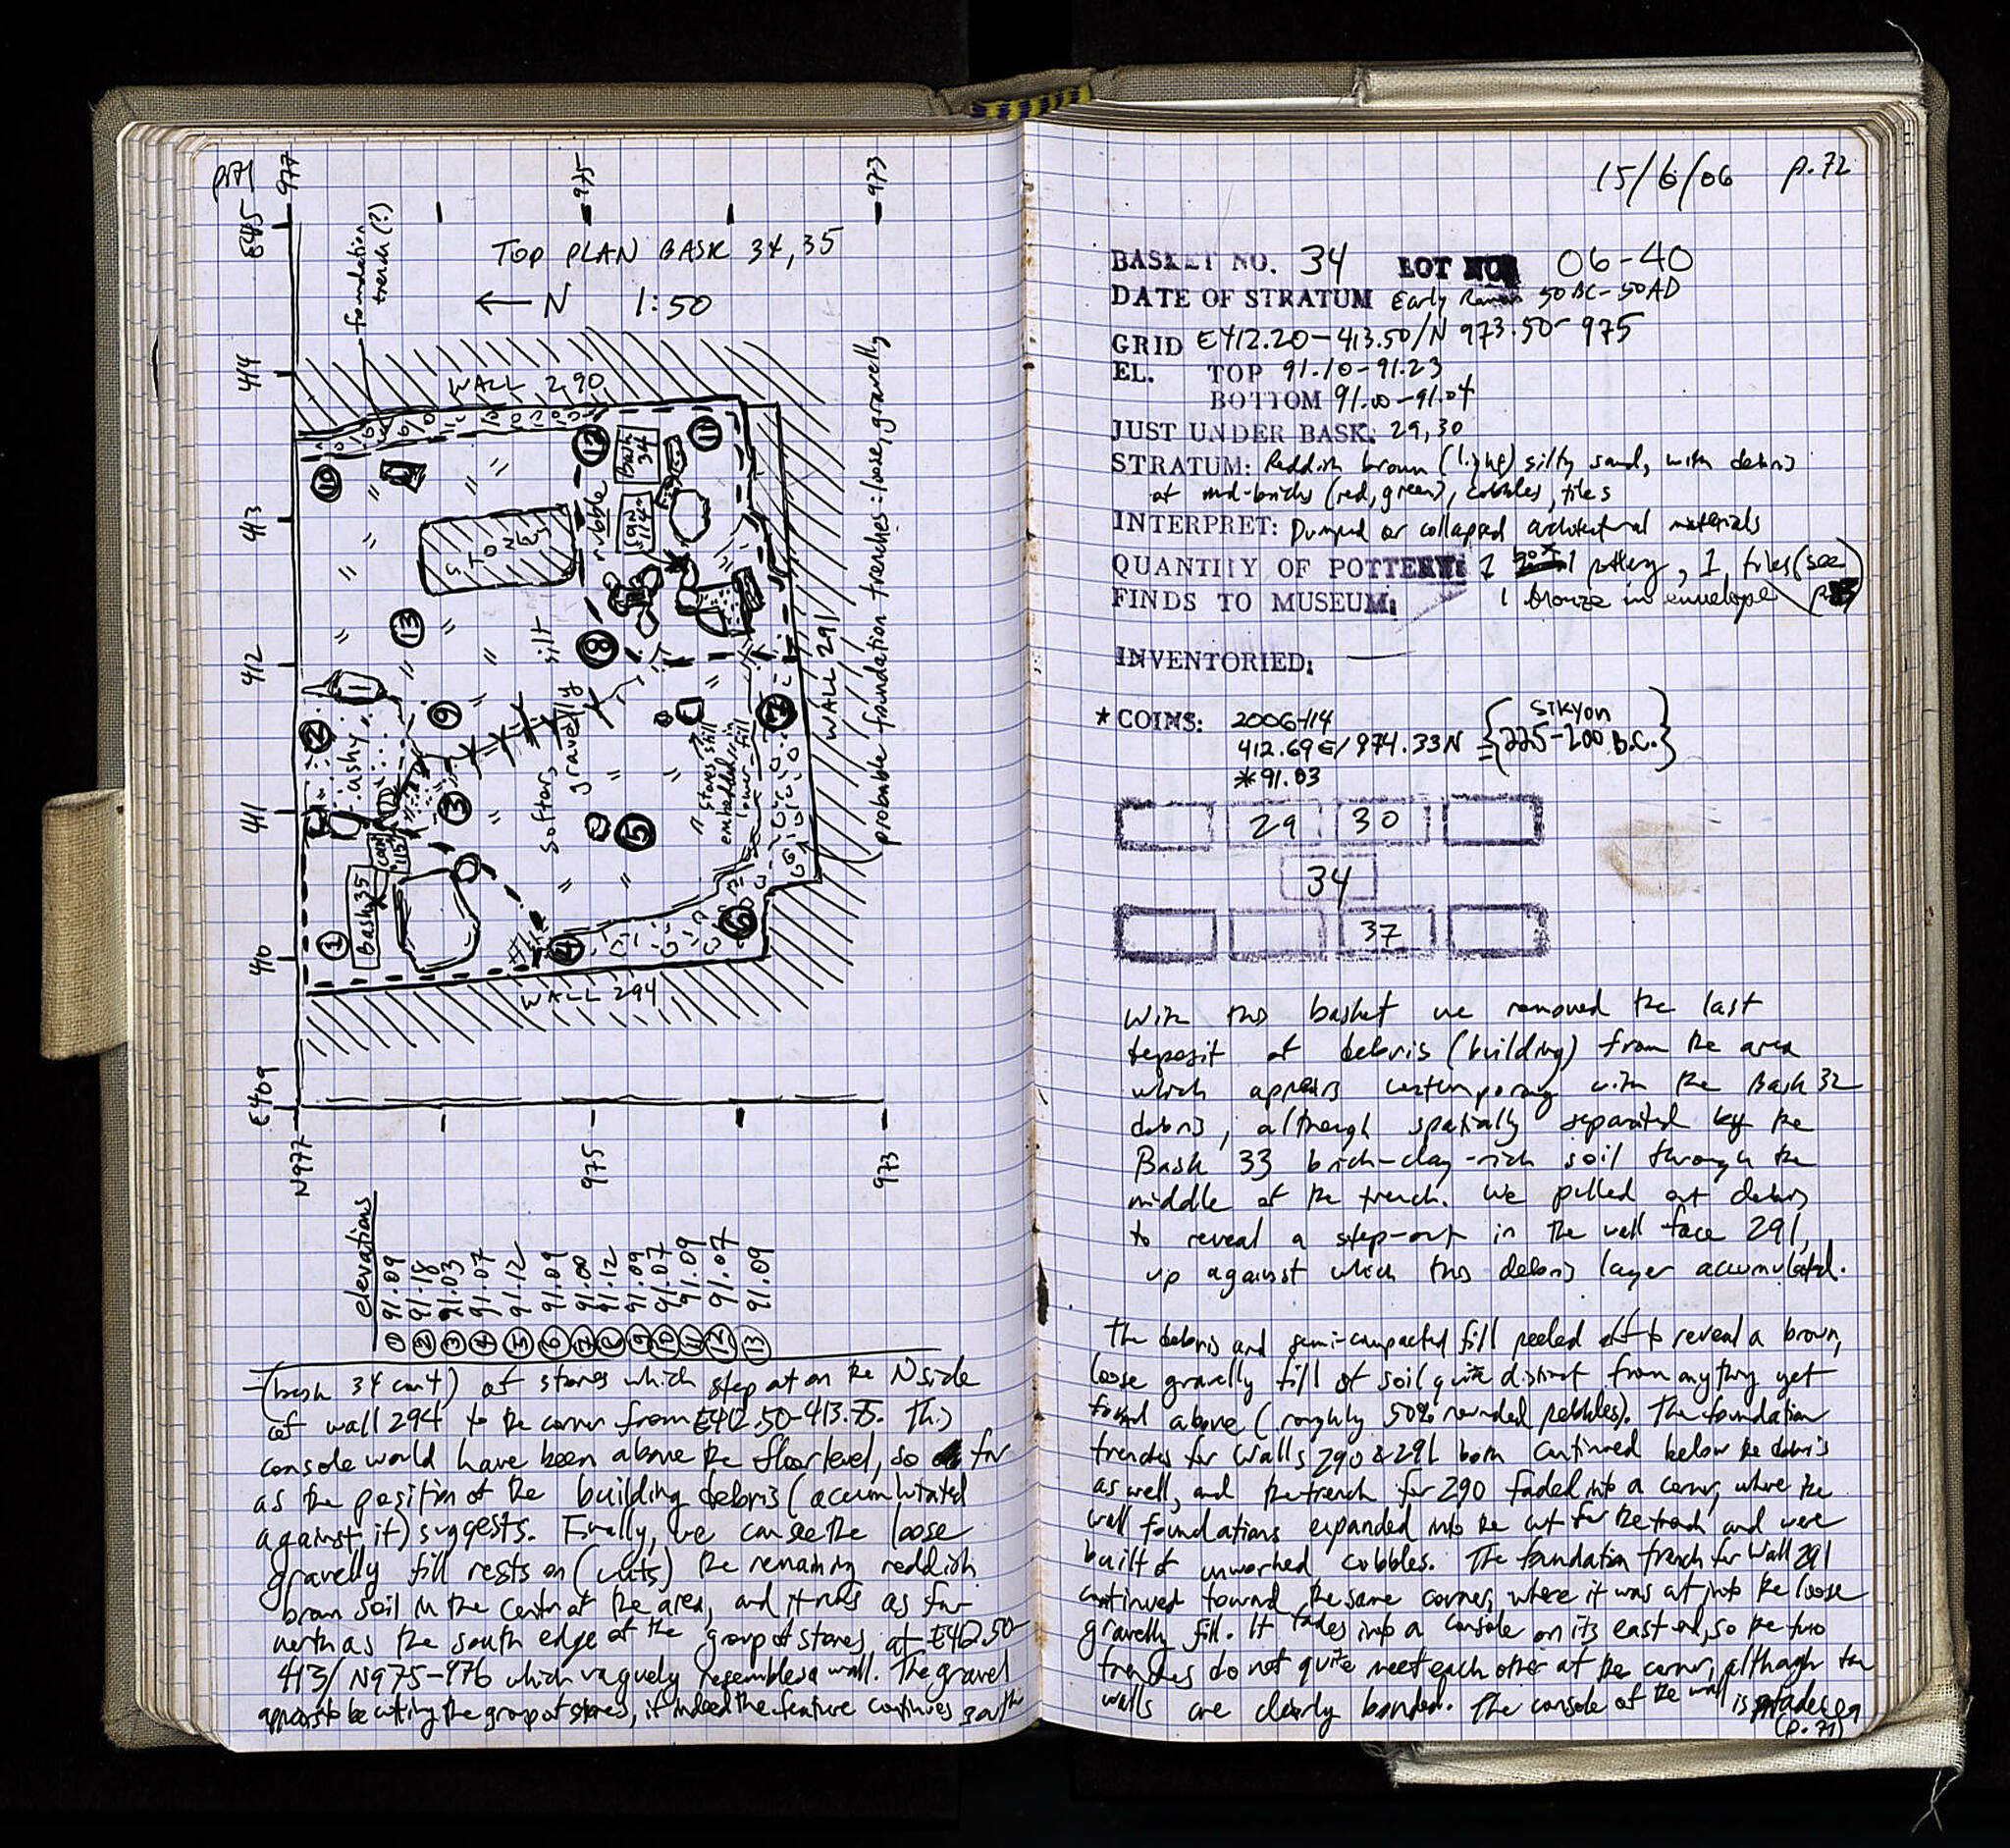 p.71
977
975
973
E415
foundation
trench (?)
TOP PLAN BASK 34, 35
← N 1:50
414
WALL 290
413
412
411
410
E409
10
12
Bask
34
11
rubble
coin
STONES
13
8
silt
gravelly
softer,
2
9
ashy
3
5
7
stones still
embedded in
lower fill
WALL 291
probable foundation trenches: loose, gravelly
coin
1
Bask 35
4
6
WALL 294
N977
975
973
elevations
① 91.09
② 91.18
③ 91.03
④ 91.07
⑤ 91.12
⑥ 91.09
⑦ 91.00
⑧ 91.12
⑨ 91.09
⑩ 91.07
⑪ 91.09
⑫ 91.07
⑬ 91.09
(bask 34 con't) of stones which step out on the N side
of wall 294 to the corner from E412.50-413.75. This
console would have been above the floor level, so far
as the position of the building debris (accumulated
against it) suggests. Finally, we can see the loose
gravelly fill rests on (cuts) the remaining reddish
brown soil in the center of the area, and it runs as far
north as the south edge of the group of stones at E412.50-
413/N975-976 which vaguely resembles a wall. The gravel
appears to be cutting the group of stones, if indeed the feature continues south
15/6/06 p.72
BASKET NO. 34 LOT NO. 06-40
DATE OF STRATUM Early Roman 50 BC-50 AD
GRID E412.20-413.50/N 973.50-975
EL. TOP 91.10-91.23
BOTTOM 91.00-91.04
JUST UNDER BASK: 29, 30
STRATUM: Reddish brown (light) silty sand, with debris
of mud-bricks (red, green), cobbles, tiles
INTERPRET: Dumped or collapsed architectural materials
QUANTITY OF POTTERY: 1 pottery, 1 tiles (see
FINDS TO MUSEUM: 1 bronze in envelope
INVENTORIED: —
* COINS: 2006-114
412.69E/974.33N = {Sikyon
225-200 B.C.}
*91.03
29 30
34
37
With this basket we removed the last
deposit of debris (building) from the area
which appears contemporary with the Bask 32
debris, although spatially separated by the
Bask 33 brick-clay-rich soil through the
middle of the trench. We pulled out debris
to reveal a step-out in the wall face 291,
up against which this debris layer accumulated.
The debris and semi-compacted fill peeled off to reveal a brown,
loose gravelly fill of soil quite distinct from anything yet
found above (roughly 50% rounded pebbles). The foundation
trenches for Walls 290 & 291 both continued below the debris
as well, and the trench for 290 faded into a corner, where the
wall foundations expanded into the cut for the trench and were
built of unworked cobbles. The foundation trench for Wall 291
continued toward the same corner, where it was cut into the loose
gravelly fill. It fades into a console on its east end, so the two
trenches do not quite meet each other at the corner, although the
walls are clearly bonded. The console of the wall is made
(p. 71)